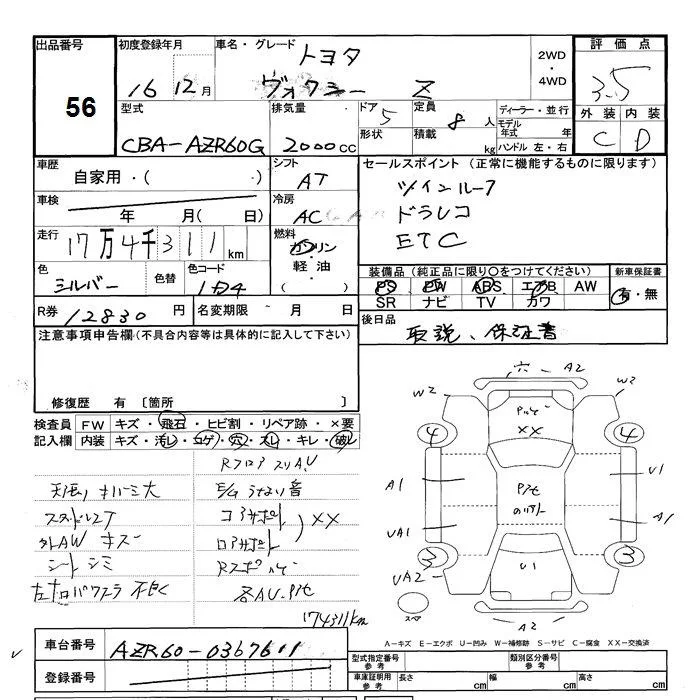 出品番号 初度登録年月 車名・グレード トヨタ 2WD・4WD 評価点
56 16 12月 ヴォクシー Z 3.5
型式 排気量 ドア 5 定員 8人 ディーラー・並行 外装 内装
CBA-AZR60G 2000cc 形状 積載 kg モデル年式 年 ハンドル 左・右 C D
車歴 自家用・( ・) シフト AT セールスポイント (正常に機能するものに限ります)
車検 年 月( 日) 冷房 AC ツインルーフ
走行 17万4千311km 燃料 ガソリン 軽油 ( ) ドラレコ
ETC
色 シルバー 色替 色コード 1D4 装備品(純正品に限り○をつけてください) 新車保証書
PS PW ABS エアB AW 有・無
SR ナビ TV カワ
R券 12830円 名変期限 月 日 後日品 取説、保証書
注意事項申告欄(不具合内容等は具体的に記入して下さい)
修復歴 有 〔箇所 〕
検査員記入欄 FW キズ・飛石・ヒビ割・リペア跡・×要
内装 キズ・汚レ・コゲ・穴・スレ・キレ・破レ
RフロアスリA,U
天張りキバミ大 E/Gうなり音
コアサポート XX
外AWキズ ロアサポート
シートシミ
各AU.P/セ
174311km
六 A2
W2 W2
XX
4 4
A1 U1
P/セ
UA1 A1
3 3
U1
UA2
スペア
A2
A-キズ E-エクボ U-凹み W-補修跡 S-サビ C-腐食 XX-交換済
車台番号 AZR60-0367611
登録番号
型式指定番号 参考 類別区分番号 参考
車庫証明用 参考 長さ cm 幅 cm 高さ cm